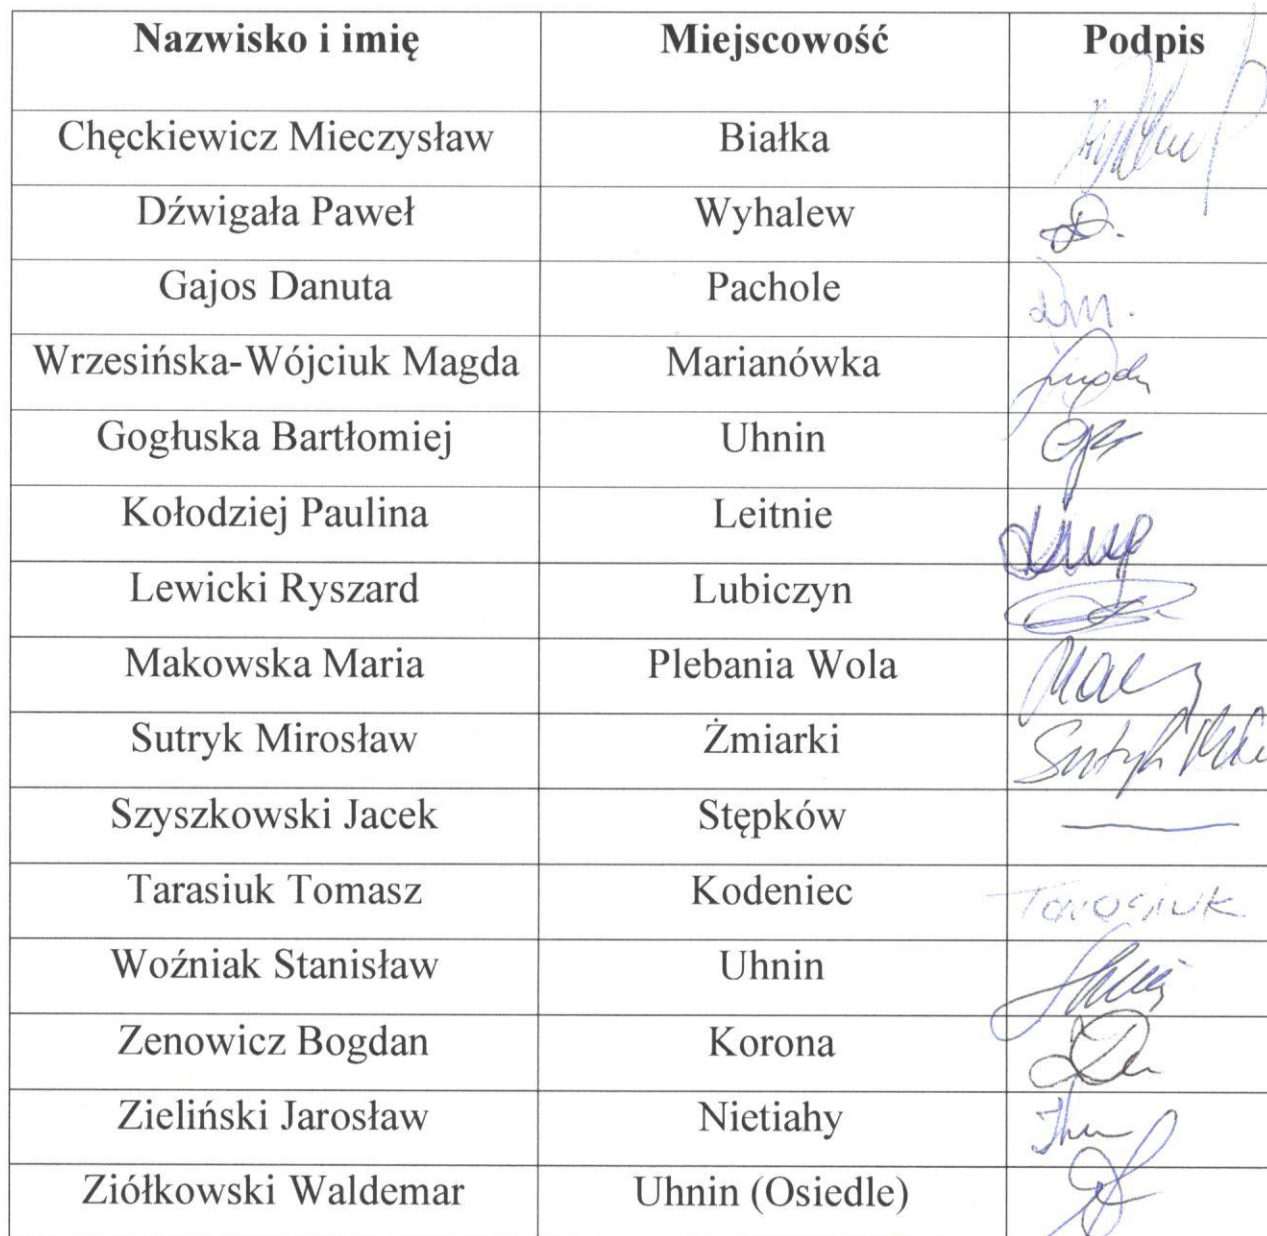 Nazwisko i imię Miejscowość Podpis
Chęckiewicz Mieczysław Białka
Dźwigała Paweł Wyhalew
Gajos Danuta Pachole
Wrzesińska-Wójciuk Magda Marianówka
Gogłuska Bartłomiej Uhnin
Kołodziej Paulina Leitnie
Lewicki Ryszard Lubiczyn
Makowska Maria Plebania Wola
Sutryk Mirosław Żmiarki Sutryk
Szyszkowski Jacek Stępków
Tarasiuk Tomasz Kodeniec Tarasiuk
Woźniak Stanisław Uhnin
Zenowicz Bogdan Korona
Zieliński Jarosław Nietiahy
Ziółkowski Waldemar Uhnin (Osiedle)